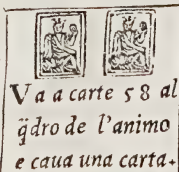 Va a carte 58 al
q̃dro de l'animo
e caua una carta.